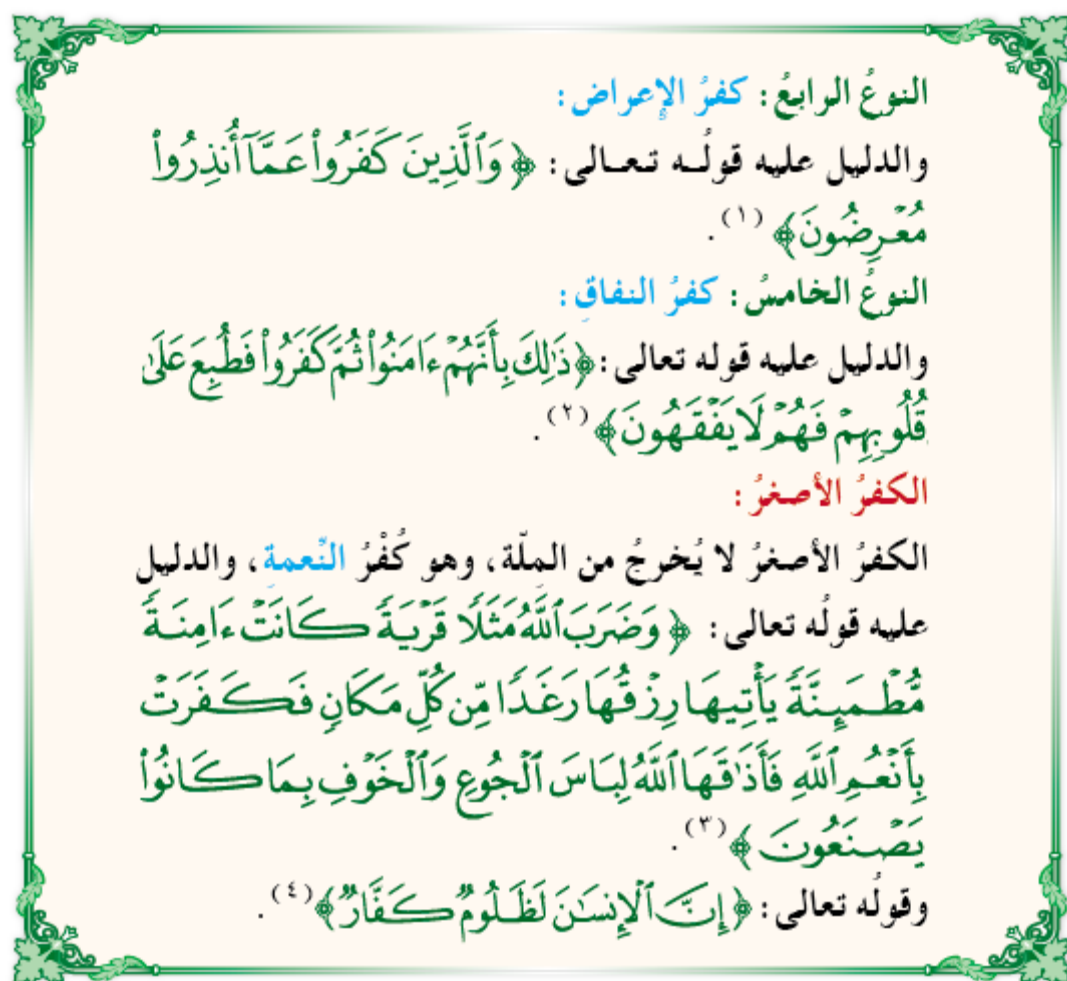 النوعُ الرابعُ: كفرُ الإعراض:
والدليل عليه قولُـه تـعـالى: ﴿وَٱلَّذِينَ كَفَرُوا۟ عَمَّآ أُنذِرُوا۟
مُعْرِضُونَ﴾ (١).
النوعُ الخامسُ: كفرُ النفاقِ:
والدليل عليه قوله تعالى: ﴿ذَٰلِكَ بِأَنَّهُمْ ءَامَنُوا۟ ثُمَّ كَفَرُوا۟ فَطُبِعَ عَلَىٰ
قُلُوبِهِمْ فَهُمْ لَا يَفْقَهُونَ﴾ (٢).
الكفرُ الأصغرُ:
الكفرُ الأصغرُ لا يُخرجُ من المِلّة، وهو كُفْرُ النِّعمةِ، والدليل
عليه قولُه تعالى: ﴿وَضَرَبَ ٱللَّهُ مَثَلًا قَرْيَةً كَانَتْ ءَامِنَةً
مُّطْمَئِنَّةً يَأْتِيهَا رِزْقُهَا رَغَدًا مِّن كُلِّ مَكَانٍ فَكَفَرَتْ
بِأَنْعُمِ ٱللَّهِ فَأَذَٰقَهَا ٱللَّهُ لِبَاسَ ٱلْجُوعِ وَٱلْخَوْفِ بِمَا كَانُوا۟
يَصْنَعُونَ﴾ (٣).
وقولُه تعالى: ﴿إِنَّ ٱلْإِنسَٰنَ لَظَلُومٌ كَفَّارٌ﴾ (٤).